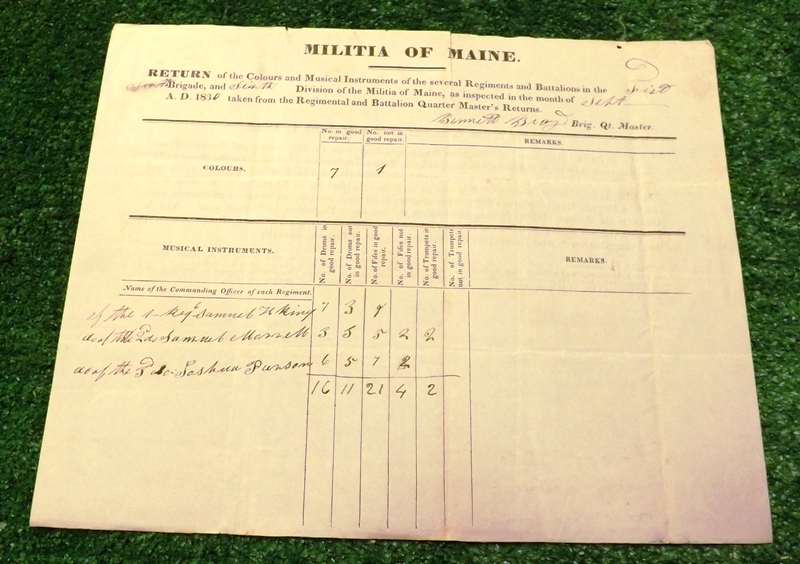 MILITIA OF MAINE.
RETURN of the Colours and Musical Instruments of the several Regiments and Battalions in the First
Brigade, and Sixth Division of the Militia of Maine, as inspected in the month of Sept
A. D. 1830 taken from the Regimental and Battalion Quarter Master's Returns.
Brig. Qt. Master.
No. in good repair. No. not in good repair. REMARKS.
COLOURS. 7 1
MUSICAL INSTRUMENTS. No. of Drums in good repair. No. of Drums not in good repair. No. of Fifes in good repair. No. of Fifes not good repair. No. of Trumpets in good repair. No. of Trumpets not in good repair. REMARKS.
Name of the Commanding Officer of each Regiment.
of the 1 Regt Samuel H King 7 3 9
do of the 2 do Samuel Morrell 3 3 5 2 2
do of the 3 do Joshua Parsons 6 5 7 2
16 11 21 4 2